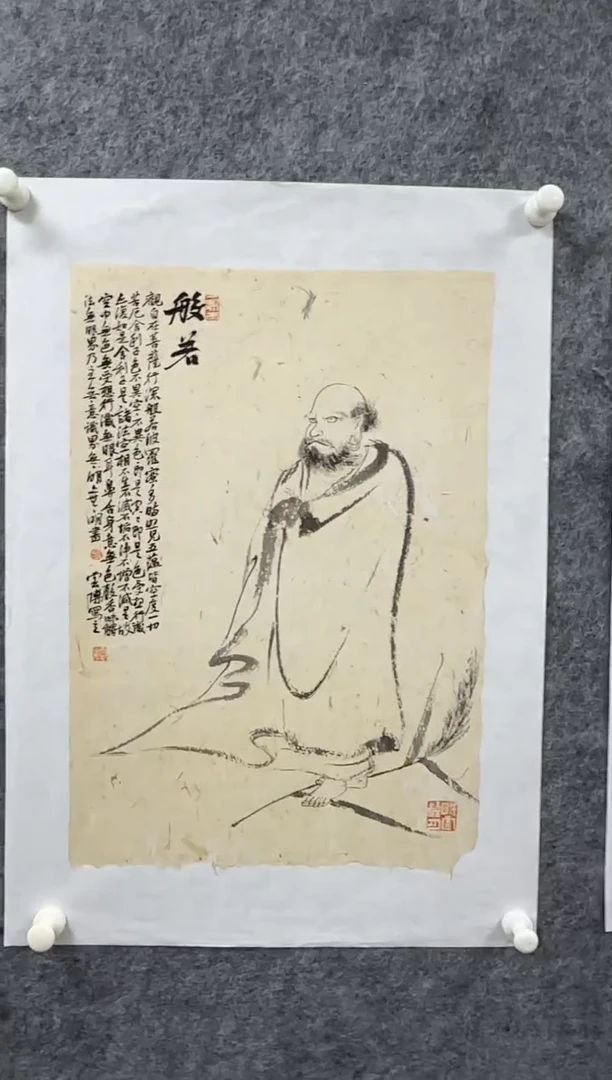 般若
觀自在菩薩行深般若波羅蜜多時照見五蘊皆空度一切
苦厄舍利子色不異空〻不異色〻即是空〻即是色受想行識
亦復如是舍利子是諸法空相不生不滅不垢不淨不增不減是故
空中無色無受想行識無眼耳鼻舌身意無色聲香味觸
法無眼界乃至無意識界無〻明